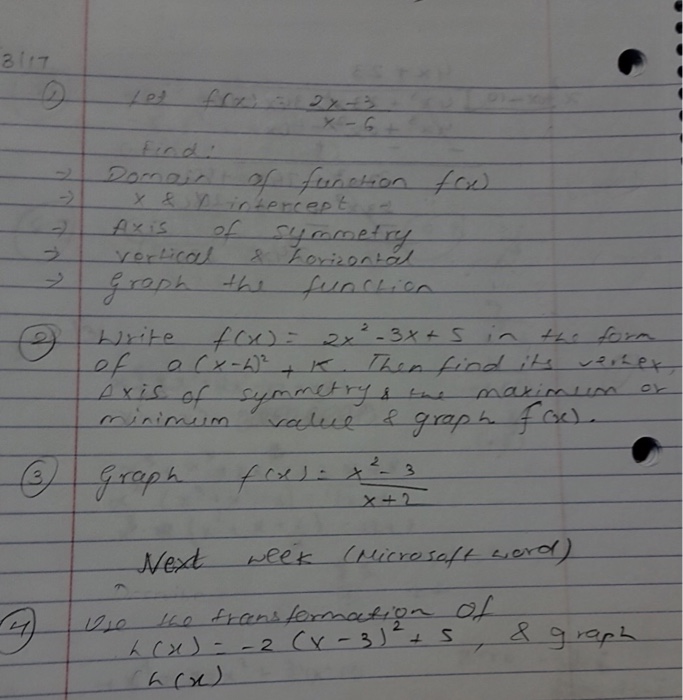 8/17
① Let f(x) = 2x+3
x-6
Find:
→ Domain of function f(x)
→ x & y intercept
→ Axis of symmetry
→ vertical & horizontal
→ graph the function
② Write f(x) = 2x² - 3x + 5 in the form
of a(x-h)² + K. Then find its vertex,
Axis of symmetry & the maximum or
minimum value & graph f(x).
③ Graph f(x) = x² - 3
x+2
Next week (Microsoft word)
④ Use the transformation of
h(x) = -2(x-3)² + 5, & graph
h(x)